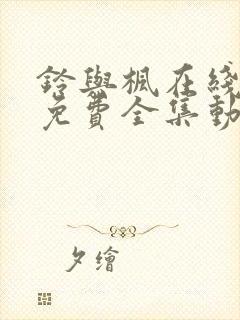 鈴與楓在綫
免費全集動
夕繪